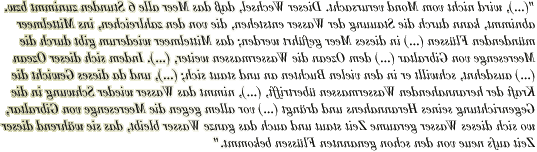 "(...), wird nicht vom Mond verursacht. Dieser Wechsel, daß das Meer alle 6 Stunden zunimmt bzw.
abnimmt, kann durch die Stauung der Wasser entstehen, die von den zahlreichen, ins Mittelmeer
mündenden Flüssen (...) in dieses Meer geführt werden; das Mittelmeer wiederum gibt durch die
Meeresenge von Gibraltar (...) dem Ozean die Wassermassen weiter, (...). Indem sich dieser Ozean
(...) ausdehnt, schwillt er in den vielen Buchten an und staut sich; (...), und da dieses Gewicht die
Kraft der herannahenden Wassermassen übertrifft, (...), nimmt das Wasser wieder Schwung in die
Gegenrichtung seines Herannahens und drängt (...) vor allem gegen die Meeresenge von Gibraltar,
wo sich dieses Wasser geraume Zeit staut und auch das ganze Wasser bleibt, das sie während dieser
Zeit aufs neue von den schon genannten Flüssen bekommt."